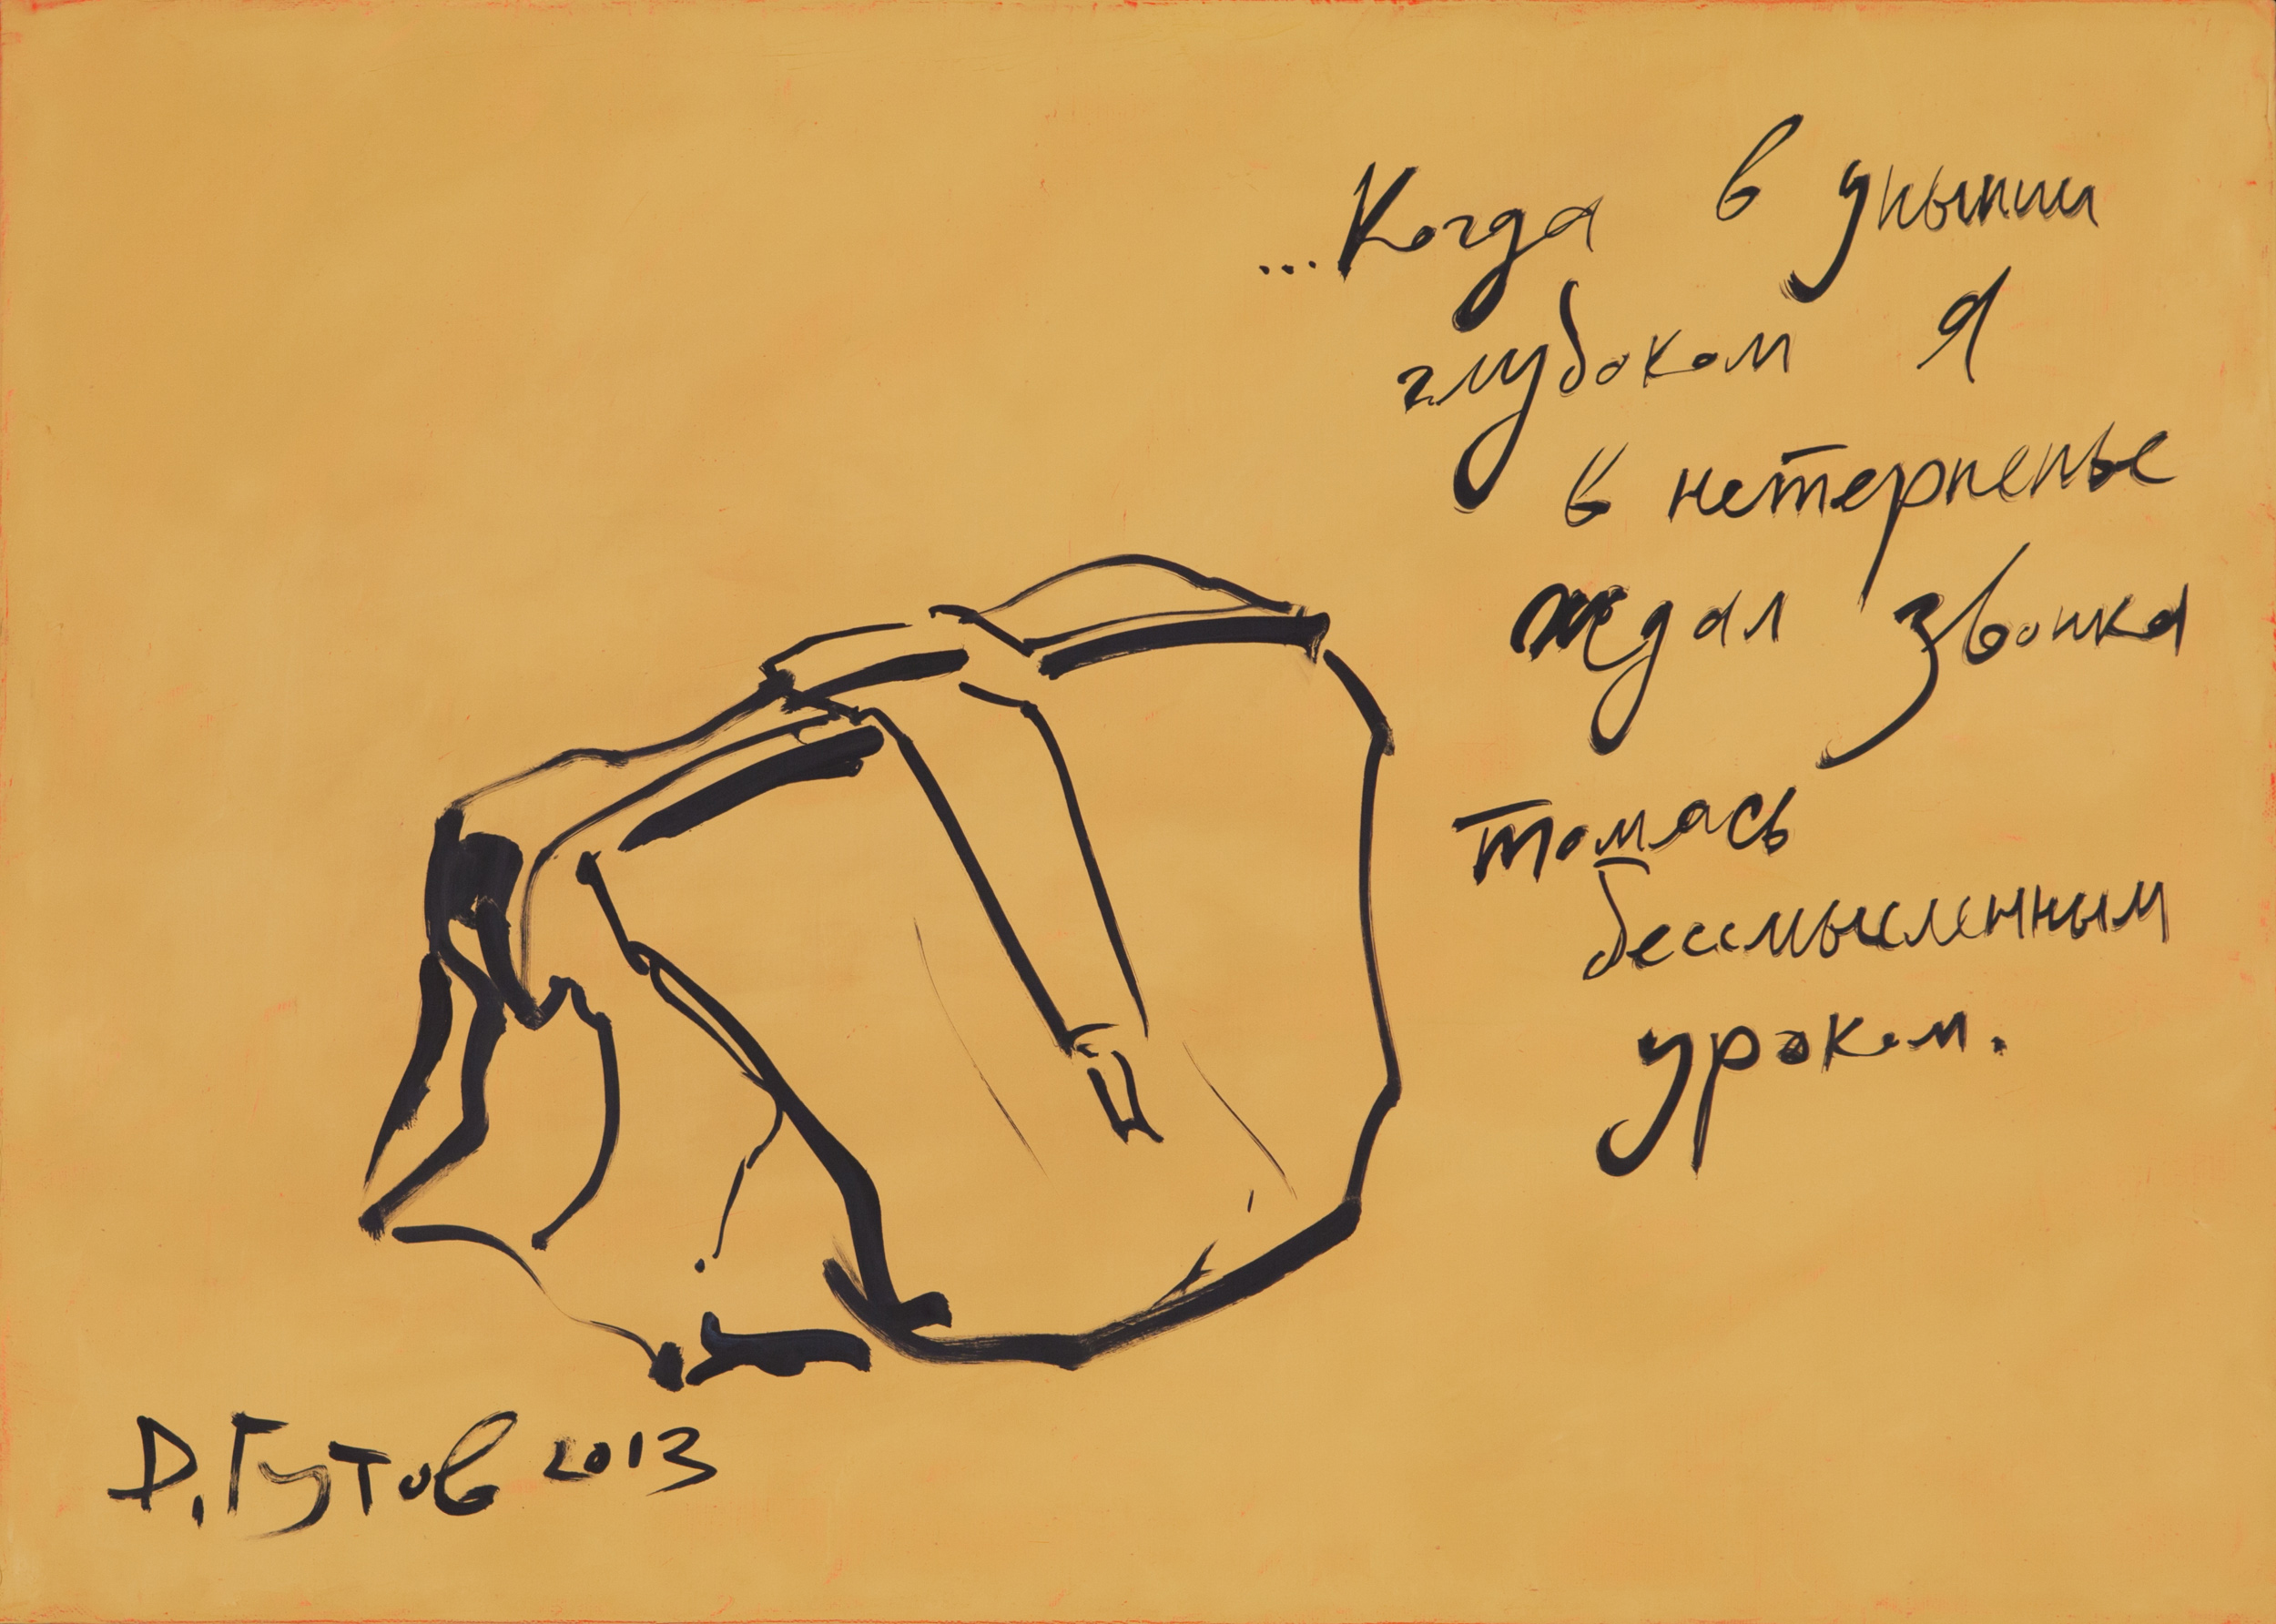 ...Когда в унынии
глубоком я
в нетерпенье
ждал звонка
томясь
бессмысленным
уроком.
Д. Гутов 2013